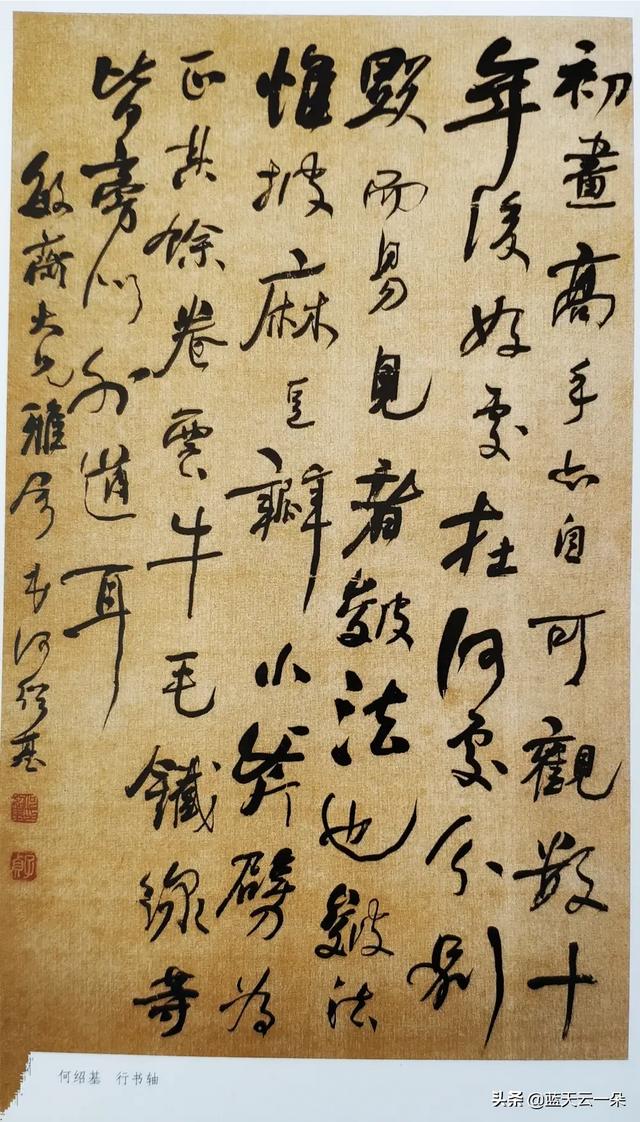 初畫高手亦自可觀數十
年後好處在何處分別
顯而易見者皴法也皴法
惟披麻豆瓣小斧劈為
正其餘卷雲牛毛鐵線等
皆旁門外道耳
敏齋大兄雅屬弟何紹基
何绍基 行书轴
头条 @蓝天云一朵